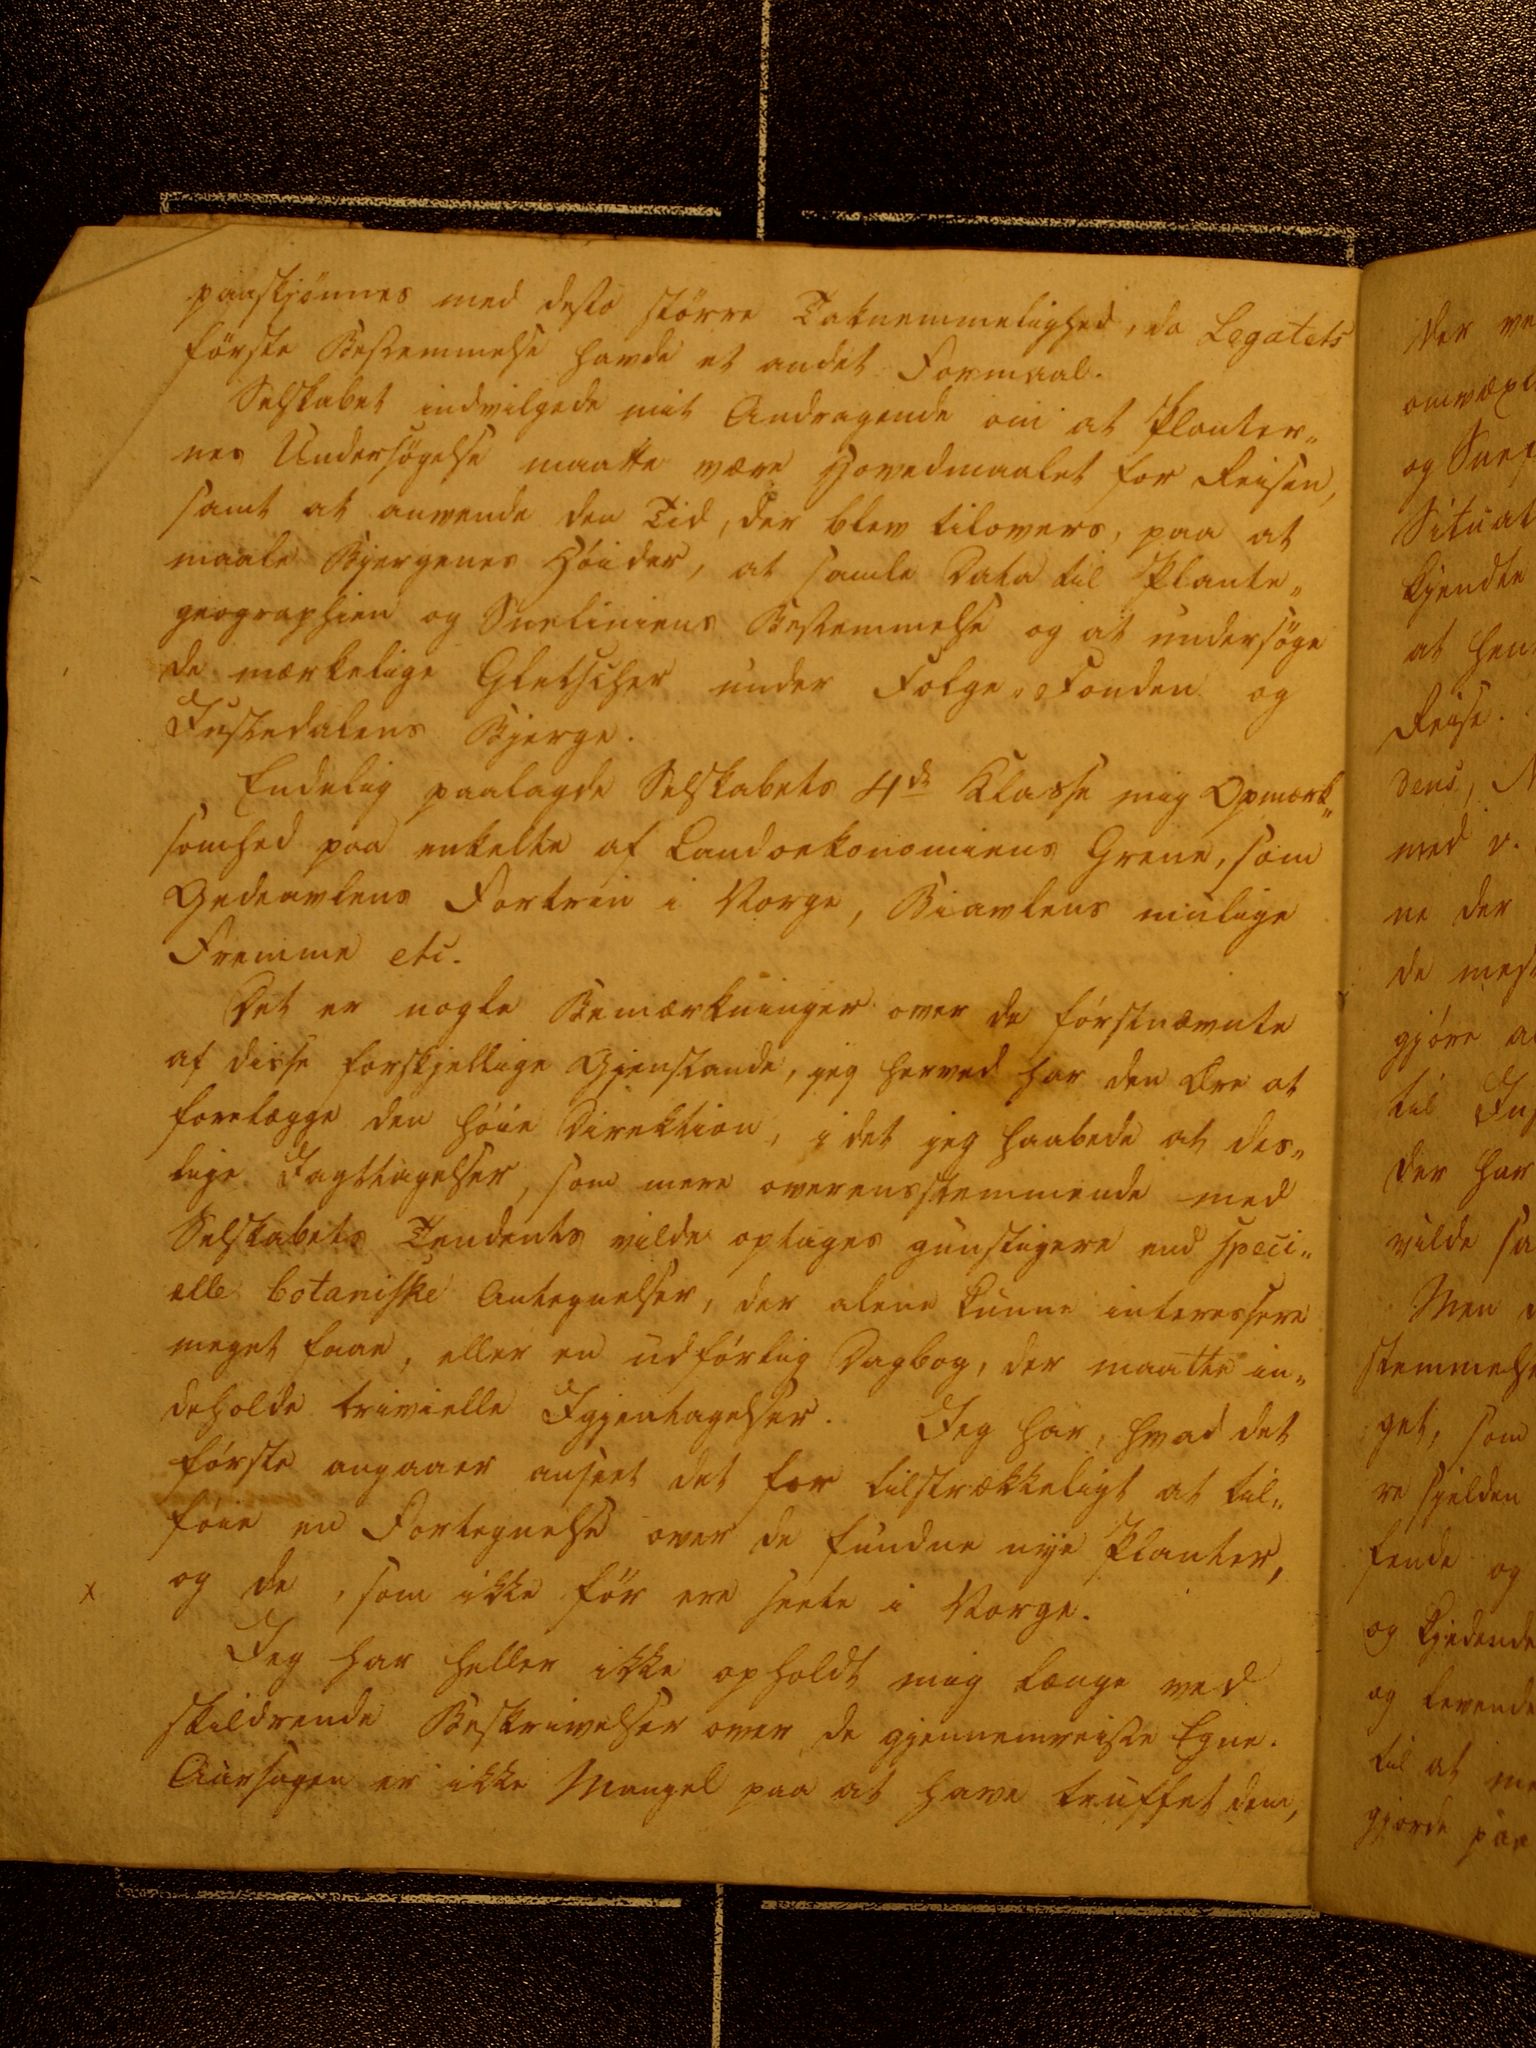 paaskjönnes med desto större Taknemmelighed, da Legatets
förste Bestemmelse havde et andet Formaal.
Selskabet indvilgede mit Andragende om at Planter„
nes Undersögelse maatte være Hovedmaalet for Reisen,
samt at anvende den Tid, der blev tilovers, paa at
maale Bjergenes Höider, at samle Data til Plante„
geographien og Sneliniens Bestemmelse og at undersöge
de mærkelige Gletscher under Folge-Fonden og
Justedalens Bjerge.
Endelig paalagde Selskabets 4de Klasse mig Opmærk„
somhed paa enkelte af Landoekonomiens Grene, som
Gedeavlens Fortrin i Norge, Biavlens mulige
Fremme etc.
Det er nogle Bemærkninger over de förstnævnte
af disse forskjellige Gjenstande, jeg herved har den Ære at
forelægge den höie Direktion, i det jeg haabede at des„
lige Iagttagelser, som mere overensstemmende med
Selskabets Tendents vilde optages gunstigere end speci„
elle botaniske Antegnelser, der alene kunne interessere
meget faae, eller en udförlig Dagbog, der maatte in„
deholde trivielle Igjentagelser. Jeg har, hvad det
förste angaaer anseet det for tilstrækkeligt at til„
föie en Fortegnelse over de fundne nye Planter,
x og de, som ikke för ere seete i Norge.
Jeg har heller ikke opholdt mig længe ved
skildrende Beskrivelser over de gjennemreiste Egne.
Aarsagen er ikke Mangel paa at have truffet dem,
der
og
Situat
kjendte
at
Reise.
med
ne der
de
gjöre
til
der har
vilde
Men
stemmelse
get, som
re sjelden
og
og
og levende
til at
gjorde paa